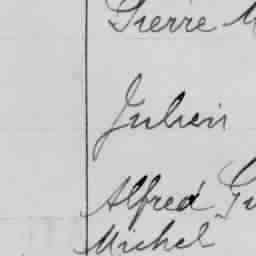 Pierre
Julien
Alfred
Michel